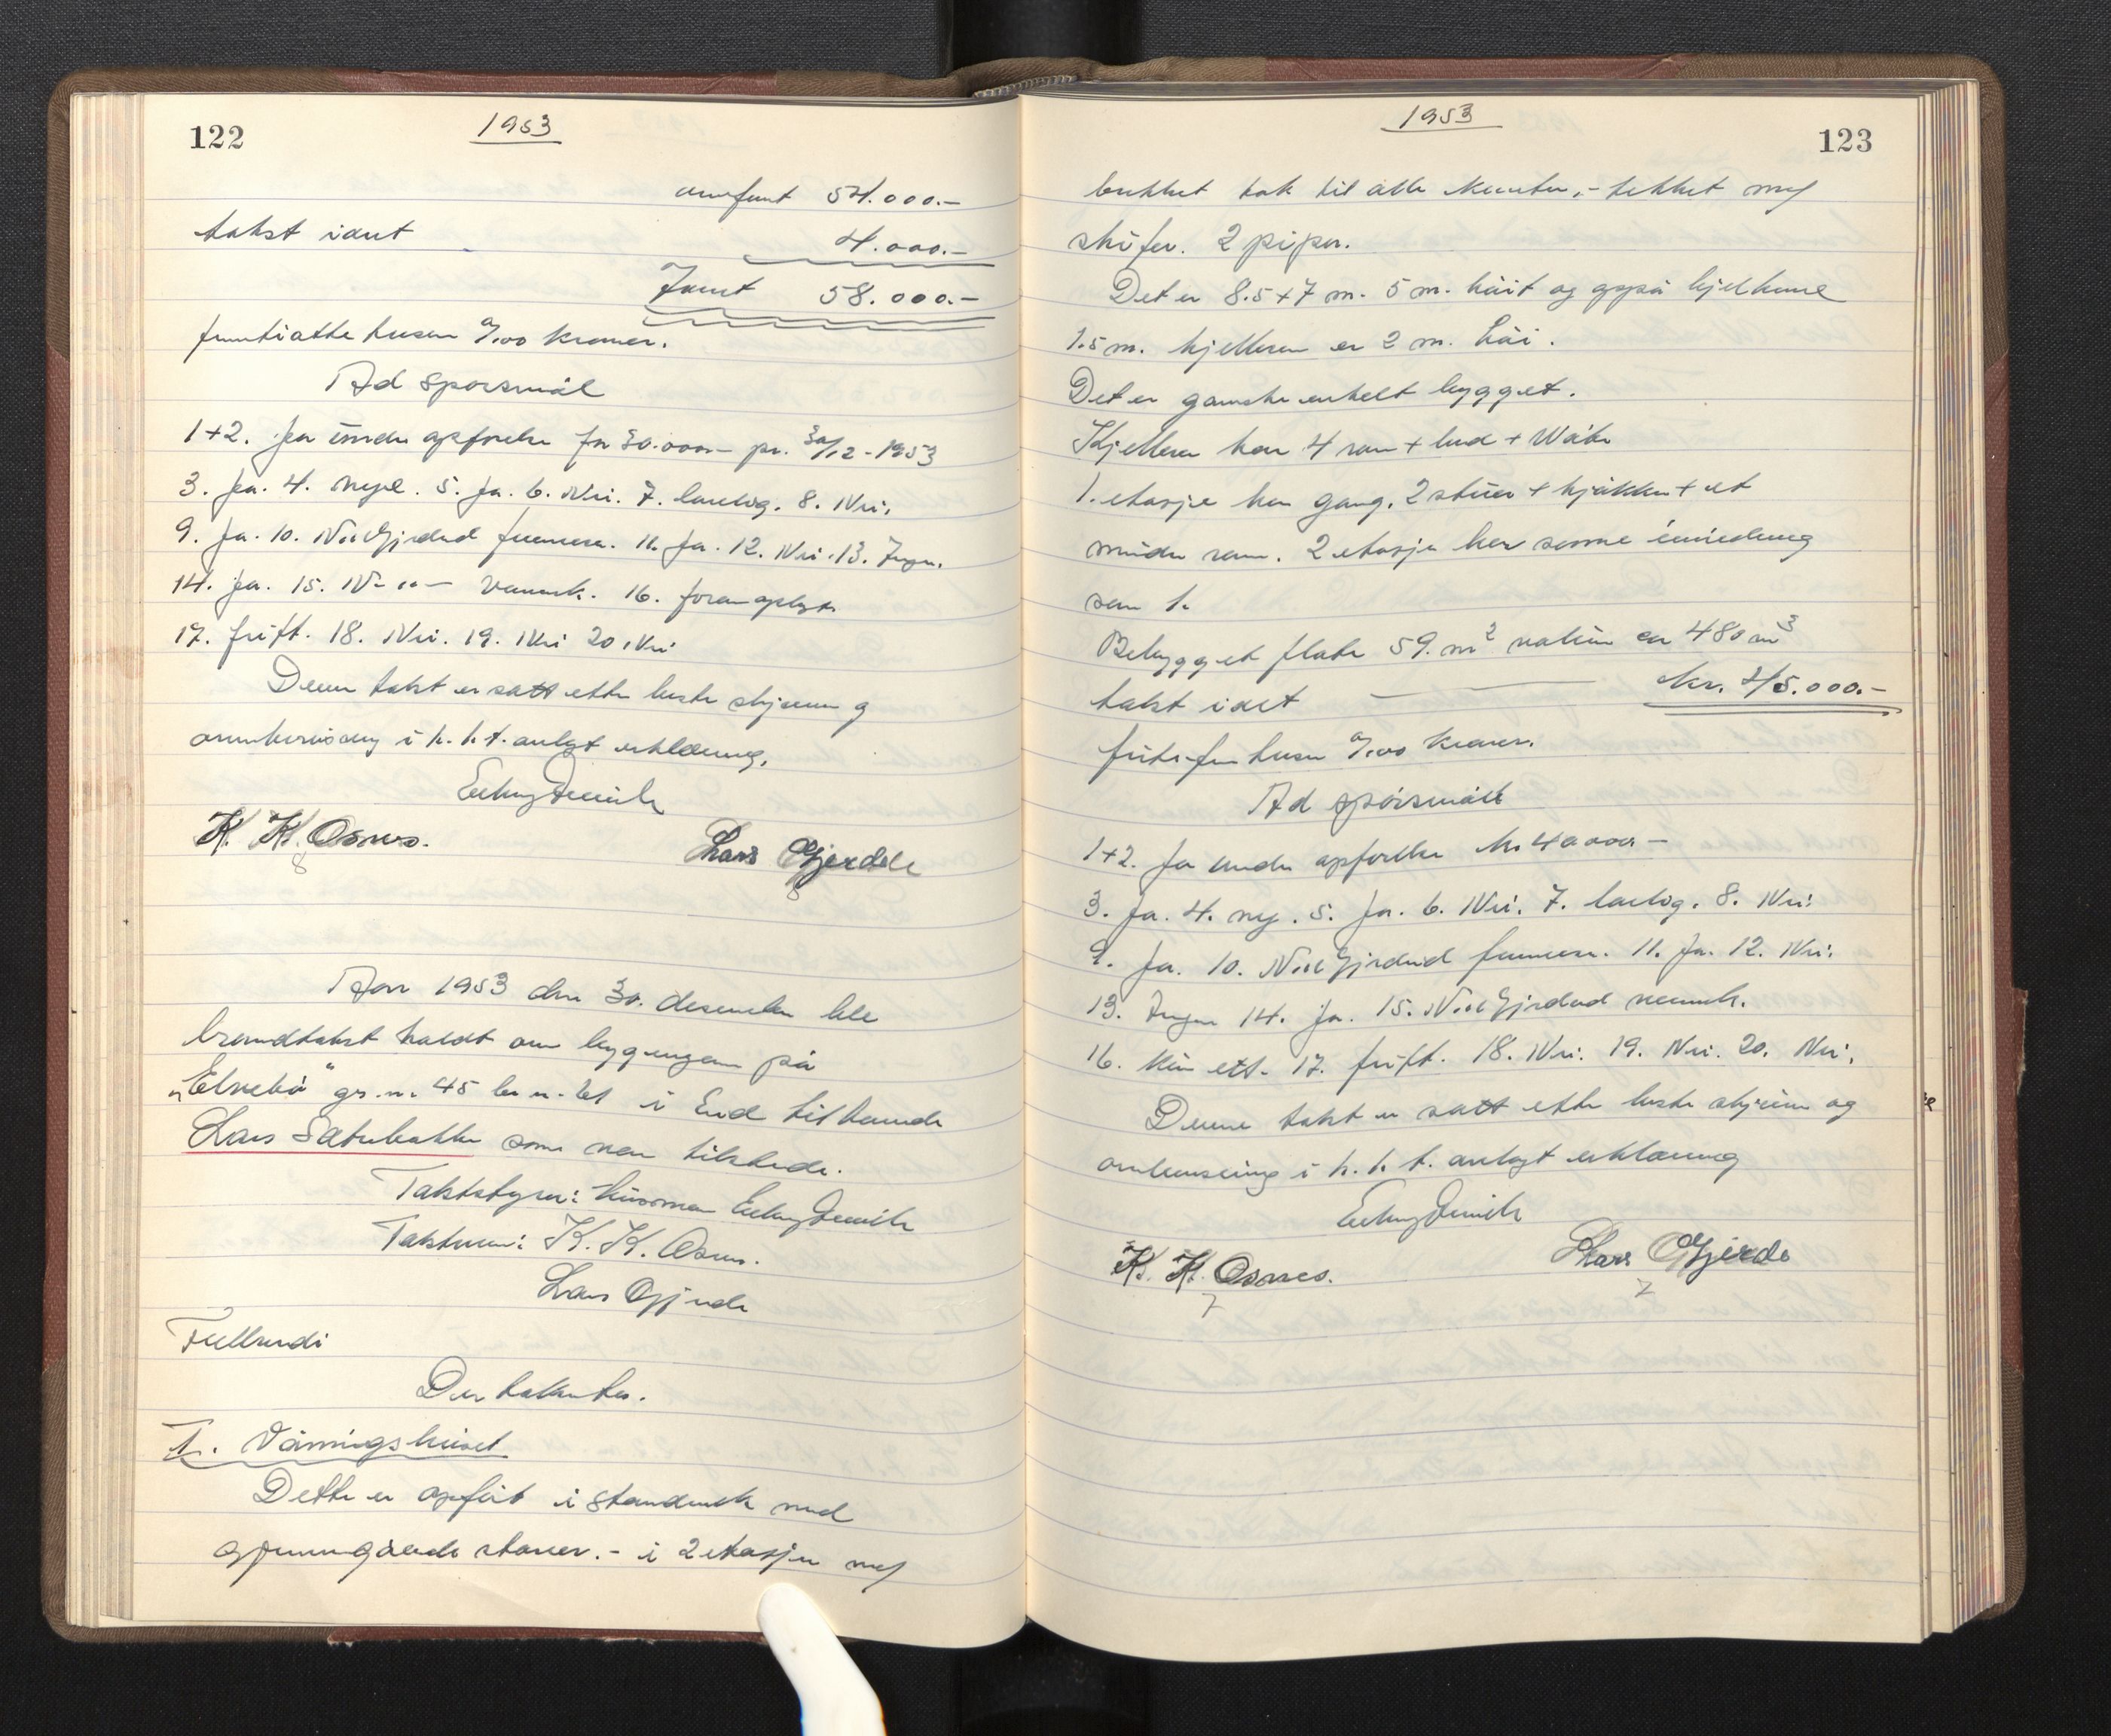 122
1953
overført 54.000.-
takst idnt 4.000.-
Samt 58.000.-
femtiåtte tusen 0/00 kroner.
Ad spørsmål
1+2. Ja under opførelse for 30.000.- pr. 30/12-1953
3. Ja. 4. nye. 5. Ja. 6. Nei. 7. lovlig. 8. Nei.
9. Ja. 10. 11. Ja. 12. Nei. 13. Ingen.
14. Ja. 15. 16. foran oplyst.
17. frift. 18. Nei. 19. Nei 20. Nei
Denne takst er satt etter beste skjønn og
overbevisning i h. h. t. avlagt erklæring.
K. K. Osnes.
Lars Gjerde
8
8
Aar 1953 den 30. desember ble
brandtakst holdt over bygningen på
„Elvebø" gr. n. 45 br. n. 21 i Eid tilhørende
Lars Sætrebakke som var tilstede.
Takststyrer:
Takstmenn: K. K. Osnes.
Lars Gjerde
Der takseres.
1. Våningshuset
Dette er opført i standverk med
gjennomgående staver. - i 2 etasjer med
1953
123
brukket tak til alle kanter, - tekket med
skifer. 2 piper.
Det er 8.5 + 7 m. 5 m. høit og også kjelkene
1.5 m. kjelleren er 2 m. høi.
Det er ganske enkelt bygget.
Kjelleren har 4 rom + bod +
1. etasje har gang, 2 stuer + kjøkken + et
mindre rom. 2 etasje har samme inredning
som 1.
Bebygget flate 59. m2 volum ca 480 m3
takst idet kr. 45.000.-
førtifem tusen 0/00 kroner.
Ad spørsmål
1+2. Ja under opførelse kr. 40000.-
3. Ja. 4. ny. 5. Ja. 6. Nei. 7. lovlig. 8. Nei.
9. Ja. 10. 11. Ja. 12. Nei.
13. Ingen 14. Ja. 15.
16. Kun ett. 17. frift. 18. Nei. 19. Nei. 20. Nei.
Denne takst er satt etter beste skjønn og
overbevisning i h. h. t. avlagt erklæring
K. K. Osnes.
Lars Gjerde
7
7